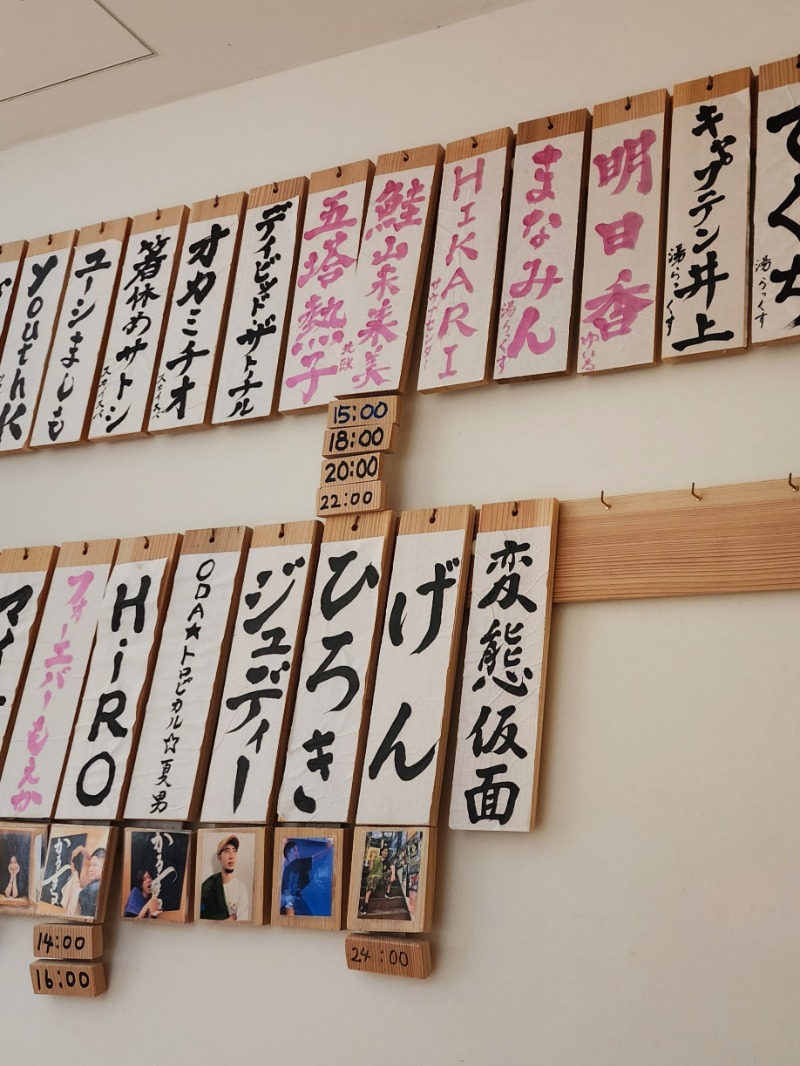 でぐち
湯らっくす
キャプテン井上
湯らっくす
明日香
ゆいる
まなみん
湯らっくす
HIKARI
サウナセンター
鮭山未菜美
北欧
五塔熱子
デイビッドザトナル
オカミチオ
スカイスパ
箸休めサトシ
スカイスパ
ユージましも
youthK
15:00
18:00
20:00
22:00
変態仮面
げん
ひろき
ジュディー
ODA★トロピカル☆夏男
HiRO
フォーエバーもえか
マイ
かるまる
かるまる
14:00
16:00
24:00